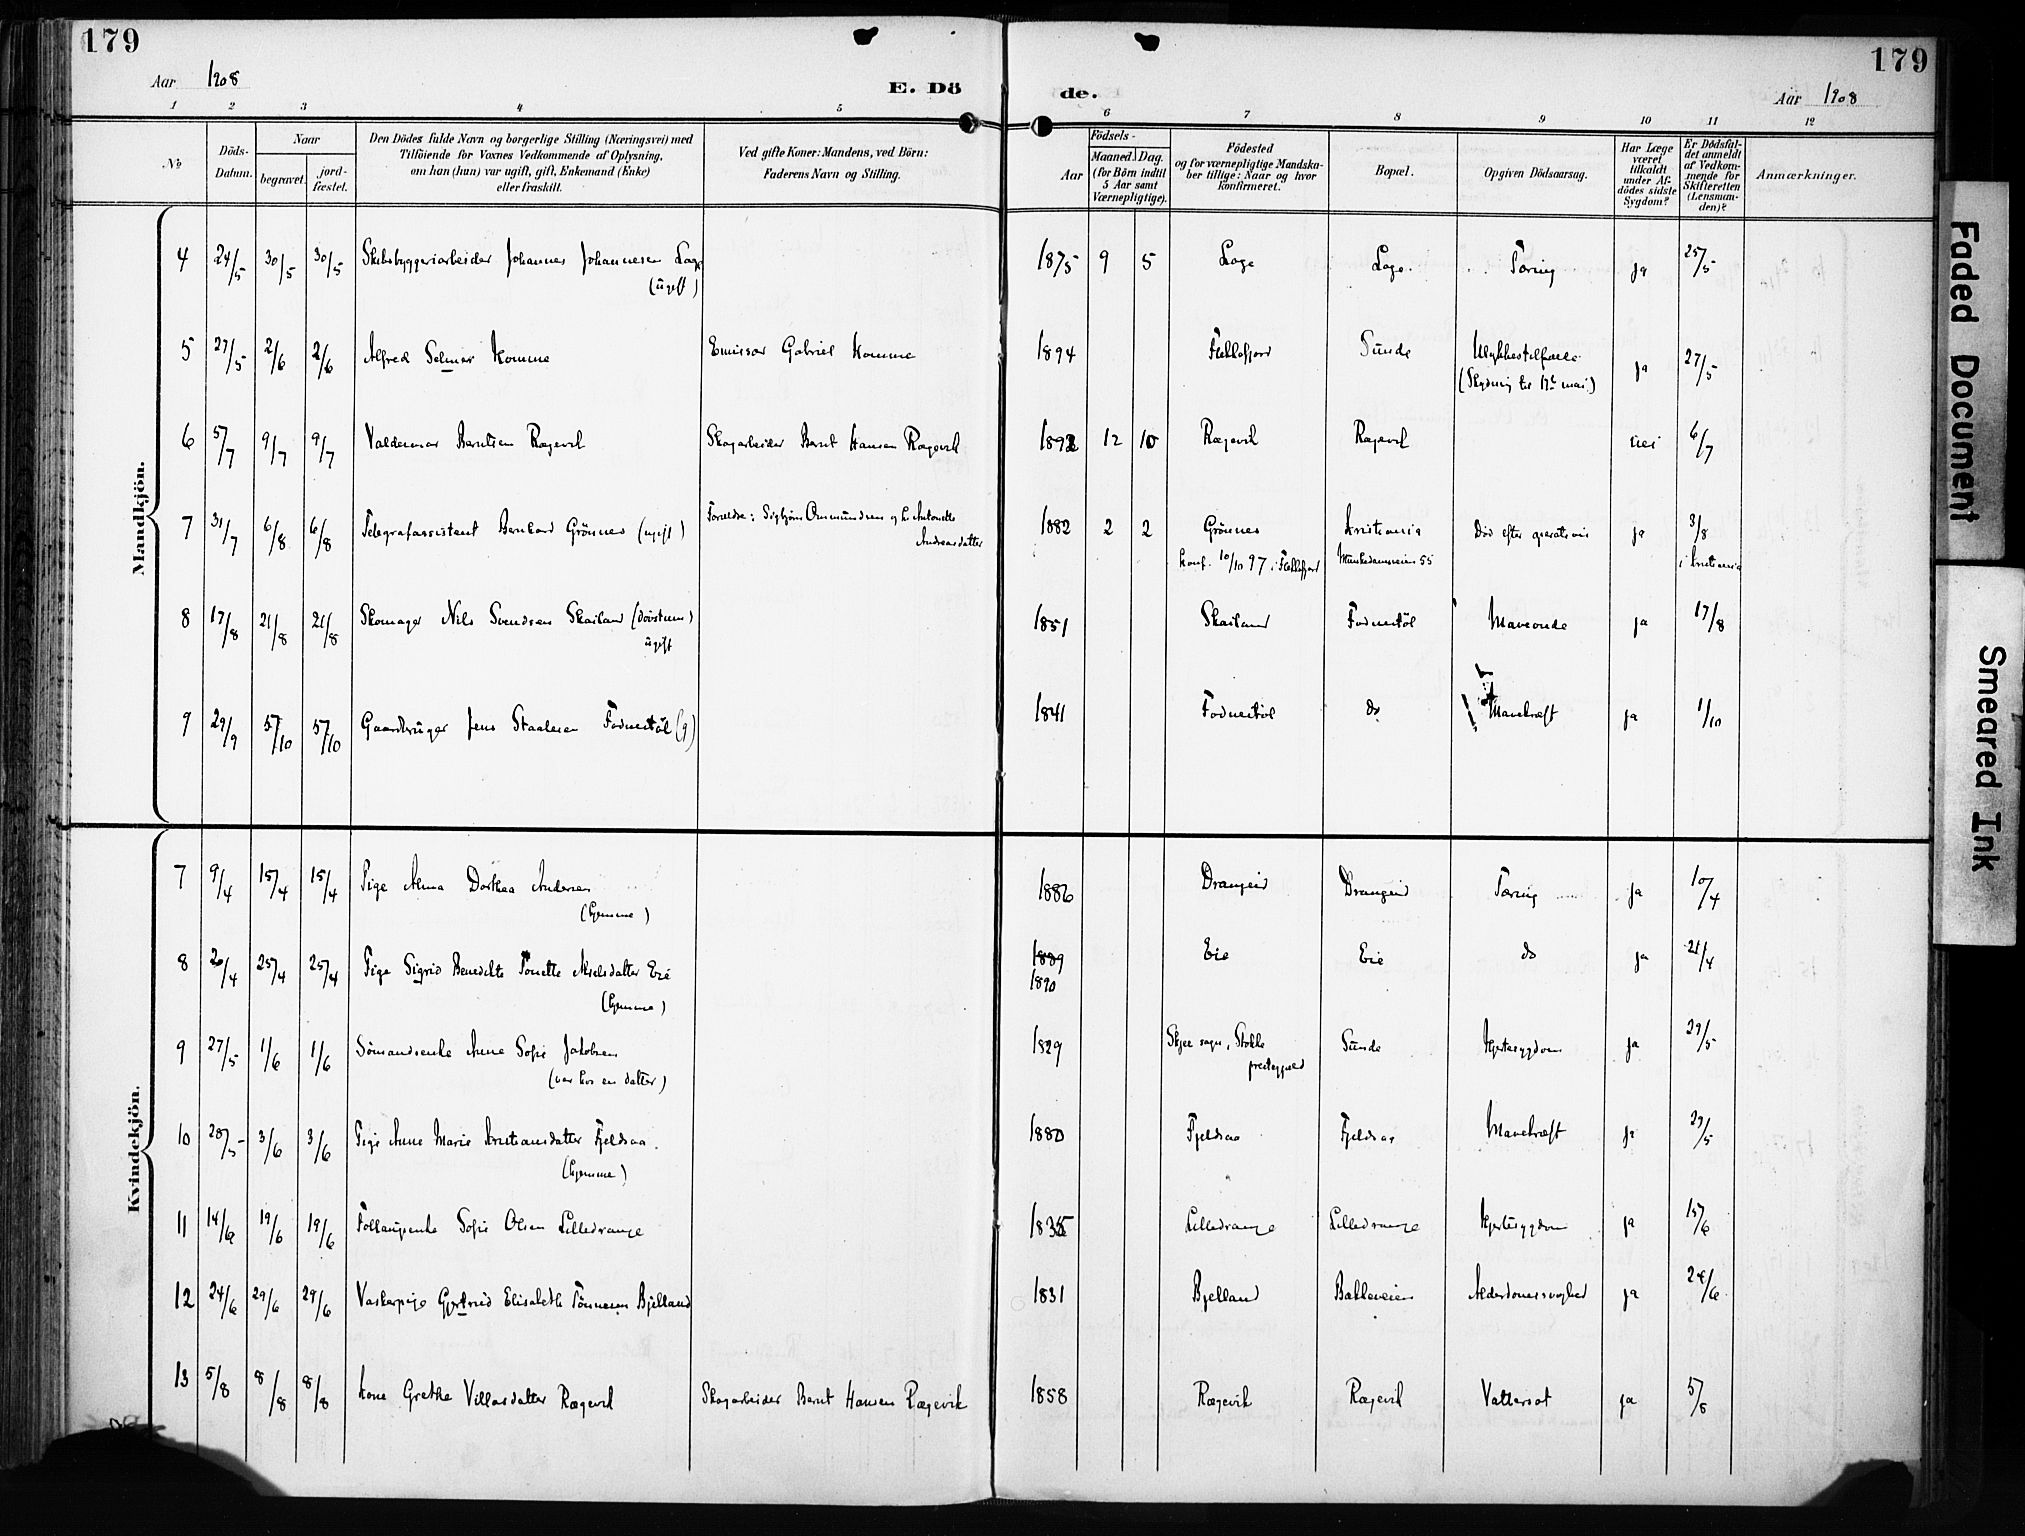 179
179
Aar 1908
E. Dö
de.
Aar 1908
1 2 3 4 5 6 7 8 9 10 11 12
No
Döds-Datum.
Naar
begravet.
jord-fæstet.
Den Dödes fulde Navn og borgerlige Stilling (Næringsvei) med
Tilföiende for Voxnes Vedkommende af Oplysning,
om han (hun) var ugift, gift, Enkemand (Enke)
eller fraskilt.
Ved gifte Koner: Mandens, ved Börn:
Faderens Navn og Stilling.
Födsels-
Aar
Maaned. Dag.
(for Börn indtil
5 Aar samt
Værnepligtige).
Födested
og for værnepligtige Mandska-
ber tillige: Naar og hvor
konfirmeret.
Bopæl.
Opgiven Dödsaarsag.
Har Læge
været
tilkaldt
under Af-
dödes sidste
Sygdom?
Er Dödsfal-
det anmeldt
af Vedkom-
mende for
Skifteretten
(Lensman-
den)?
Anmærkninger.
Mandkjön.
4 24/5 30/5 30/5 Skibsbyggeriarbeider Johannes Johannesen Loge 1875 9 5 Loge Loge. Tæring ja 25/5
(ugift)
5 27/5 2/6 2/6 Alfred Selmer Komme Emissær Gabriel Komme 1894 Flekkefjord Sunde Ulykkestilfælde ja 27/5
(Skydning for 17de mai)
6 5/7 9/7 9/7 Valdemar Berntsen Rægevik Skogarbeider Bernt Hansen Rægevik 12 10 Rægevik Rægevik nei 6/7
7 31/7 6/8 6/8 Telegrafassistent Bernhard Grönnes (ugift) Forældre: Sigbjörn Ommundsen og h. Antonette 1882 2 2 Grönnes Kristiania Död efter operation ja 3/8
Andreasdatter konf. 10/10 97 i Flekkefjord Munkedamsveien 55 i Kristiania
8 17/8 21/8 21/8 Skomager Nils Svendsen Skailand (dövstum) 1851 Skailand Fodnestöl Maveonde ja 17/8
ugift
9 29/9 5/10 5/10 Gaardbruger Jens Staalesen Fodnestöl (g) 1841 Fodnestöl do Mavekræft ja 1/10
Kvindekjön.
7 9/4 15/4 15/4 Pige Anna Dorthea Andersen 1886 Drangeid Drangeid Tæring ja 10/4
(hjemme)
8 20/4 25/4 25/4 Pige Sigrid Benedikte Tonette Akselsdatter Eie 1889 Eie Eie do ja 21/4
(hjemme) 1890
9 27/5 1/6 1/6 Sömandsenke Anne Sofie Jakobsen 1829 Skjee sogn, Stokke Sunde Hjertesygdom ja 29/5
(var hos en datter) prestegjeld
10 28/5 3/6 3/6 Pige Anne Marie Kristiansdatter Fjeldsaa. 1880 Fjeldsaa Fjeldsaa Mavekræft ja 29/5
(hjemme)
11 14/6 19/6 19/6 Föllaugsenke Sofie Olsen Lilledrange Lilledrange Lilledrange Hjertesygdom ja 15/6
12 24/6 29/6 29/6 Vaskerpige Gjertrud Elisabeth Tönnesen Bjelland 1831 Bjelland Bakkeveien Alderdomssvaghed ja 24/6
13 5/8 8/8 8/8 Kone Grethe Villasdatter Rægevik Skogarbeider Bernt Hansen Rægevik 1858 Rægevik Rægevik Vattersot ja 5/8
Faded Document
Smeared Ink